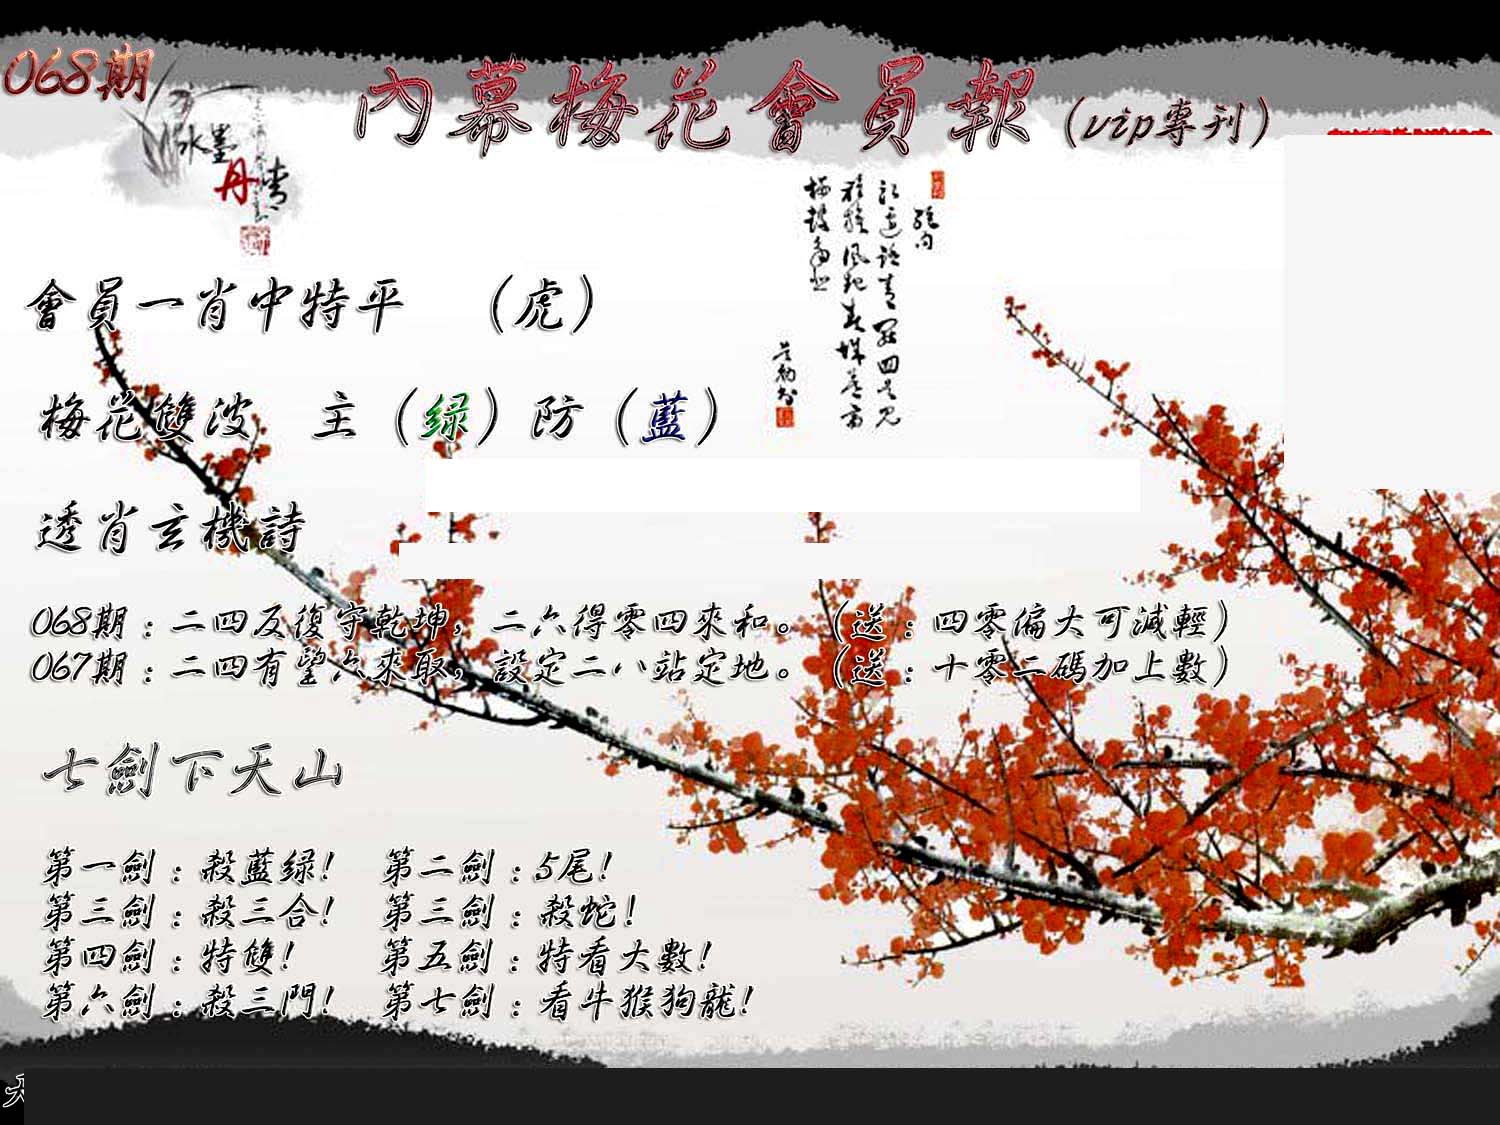 068期
內幕梅花會員報(vip專刊)
水墨
丹青
會員一肖中特平 (虎)
梅花雙波 主(绿)防(藍)
透肖玄機詩
068期：二四反復守乾坤，二六得零四來和。(送：四零偏大可減輕)
067期：二四有望六來取，設定二八站定地。(送：十零二碼加上數)
七劍下天山
第一劍：殺藍绿! 第二劍：5尾!
第三劍：殺三合! 第三劍：殺蛇!
第四劍：特雙! 第五劍：特看大數!
第六劍：殺三門! 第七劍：看牛猴狗龍!